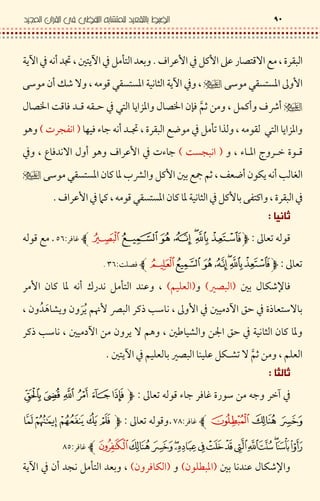 ٩٠ الضبط بالتقعيد للمتشابه اللفظي في القرآن المجيد
البقرة ، مع الاقتصار على الأكل في الأعراف . وبعد التأمل في الآيتين ، تجد أنه في الآية
الأولى المستسقي موسى ، وفي الآية الثانية المستسقي قومه ، ولا شك أن موسى
أشرف وأكمل ، ومن ثمَّ فإن الخصال والمزايا التي في حـقه قـد فاقت الخصال
والمزايا التي لقومه ، ولذا تأمل في موضع البقرة ، تجـد أنه جاء فيها ( انفجرت ) وهو
قـوة خـروج المـاء ، و ( انبجست ) جاءت في الأعراف وهو أول الاندفاع ، وفي
الغالب أنه يكون أضعف ، ثم جمع بين الأكل والشرب لما كان المستسقي موسى
في البقرة ، واكتفى بالأكل في الثانية لما كان المستسقي قومه ، كما في الأعراف .
ثانيا :
قوله تعالى : ﴿ فَٱسْتَعِذْ بِٱللَّهِ ۖ إِنَّهُۥ هُوَ ٱلسَّمِيعُ ٱلْبَصِيرُ ﴾ غافر:٥٦ . مع قوله
تعالى : ﴿ فَٱسْتَعِذْ بِٱللَّهِ ۖ إِنَّهُۥ هُوَ ٱلسَّمِيعُ ٱلْعَلِيمُ ﴾ فصلت:٣٦ .
فالإشكال بين (البصير) و(العليم) ، وعند التأمل ندرك أنه لما كان الأمر
بالاستعاذة في حق الآدميين في الأولى ، ناسب ذكر البصر لأنهم يُرَون ويشاهَدُون ،
ولما كان الثانية في حق الجن والشياطين ، وهم لا يرون من الآدميين ، ناسب ذكر
العلم ، ومن ثمَّ لا تشـكل علينا البصير بالعليم في الآيتين .
ثالثا :
في آخر وجه من سورة غافر جاء قوله تعالى : ﴿ فَإِذَا جَآءَ أَمْرُ ٱللَّهِ قُضِىَ بِٱلْحَقِّ
وَخَسِرَ هُنَالِكَ ٱلْمُبْطِلُونَ ﴾ غافر:٧٨ . وقوله تعالى : ﴿ فَلَمْ يَكُ يَنفَعُهُمْ إِيمَٰنُهُمْ لَمَّا
رَأَوْا۟ بَأْسَنَا ۖ سُنَّتَ ٱللَّهِ ٱلَّتِى قَدْ خَلَتْ فِى عِبَادِهِۦ ۖ وَخَسِرَ هُنَالِكَ ٱلْكَٰفِرُونَ ﴾ غافر:٨٥
والإشكال عندنا بين (المبطلون) و (الكافرون) ، وبعد التأمل نجد أن في الآية